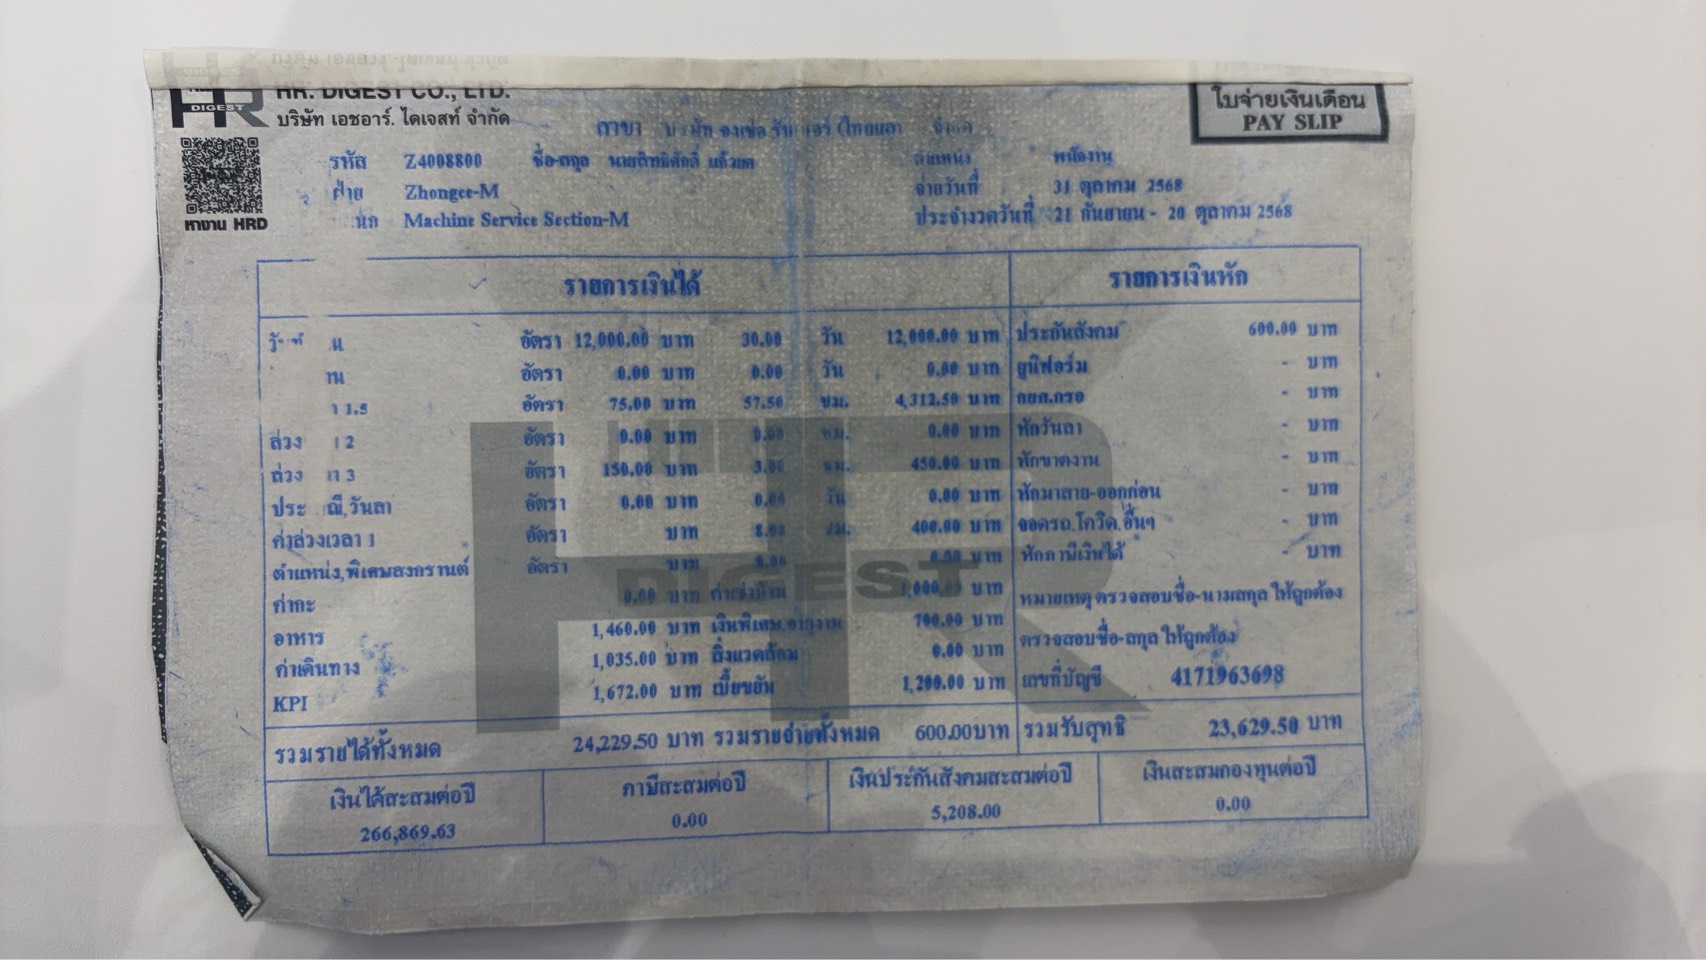 HR. DIGEST CO., LTD.
บริษัท เอชอาร์. ไดเจสท์ จำกัด
ใบจ่ายเงินเดือน
PAY SLIP
สาขา
รหัส Z4008800 ชื่อ-สกุล นายสิทธิศักดิ์ แก้วยศ ตำแหน่ง พนักงาน
ฝ่าย Zhongce-M จ่ายวันที่ 31 ตุลาคม 2568
Machine Service Section-M ประจำงวดวันที่ 21 กันยายน - 20 ตุลาคม 2568
หางาน HRD
รายการเงินได้ รายการเงินหัก
อัตรา 12,000.00 บาท 30.00 วัน 12,000.00 บาท ประกันสังคม 600.00 บาท
อัตรา 0.00 บาท 0.00 วัน 0.00 บาท ยูนิฟอร์ม - บาท
1.5 อัตรา 75.00 บาท 57.50 ชม. 4,312.50 บาท กยศ.กรอ - บาท
ล่วง 2 อัตรา 0.00 บาท 0.00 ชม. 0.00 บาท หักวันลา - บาท
ล่วง 3 อัตรา 150.00 บาท 3.00 ชม. 450.00 บาท หักขาดงาน - บาท
ประ ณี,วันลา อัตรา 0.00 บาท 0.00 วัน 0.00 บาท หักมาสาย-ออกก่อน - บาท
ค่าล่วงเวลา 1 อัตรา บาท 8.00 ชม. 400.00 บาท จอดรถ,โควิด,อื่นๆ - บาท
ตำแหน่ง,พิเศษสงกรานต์ อัตรา บาท 0.00 0.00 บาท หักภาษีเงินได้ - บาท
ค่ากะ 0.00 บาท ค่าเช่าบ้าน 1,000.00 บาท หมายเหตุ ตรวจสอบชื่อ-นามสกุล ให้ถูกต้อง
อาหาร 1,460.00 บาท เงินพิเศษ,อายุงาน 700.00 บาท ตรวจสอบชื่อ-สกุล ให้ถูกต้อง
ค่าเดินทาง 1,035.00 บาท สิ่งแวดล้อม 0.00 บาท
KPI 1,672.00 บาท เบี้ยขยัน 1,200.00 บาท เลขที่บัญชี 4171963698
รวมรายได้ทั้งหมด 24,229.50 บาท รวมรายจ่ายทั้งหมด 600.00บาท รวมรับสุทธิ 23,629.50 บาท
เงินได้สะสมต่อปี ภาษีสะสมต่อปี เงินประกันสังคมสะสมต่อปี เงินสะสมกองทุนต่อปี
266,869.63 0.00 5,208.00 0.00
HR
DIGEST